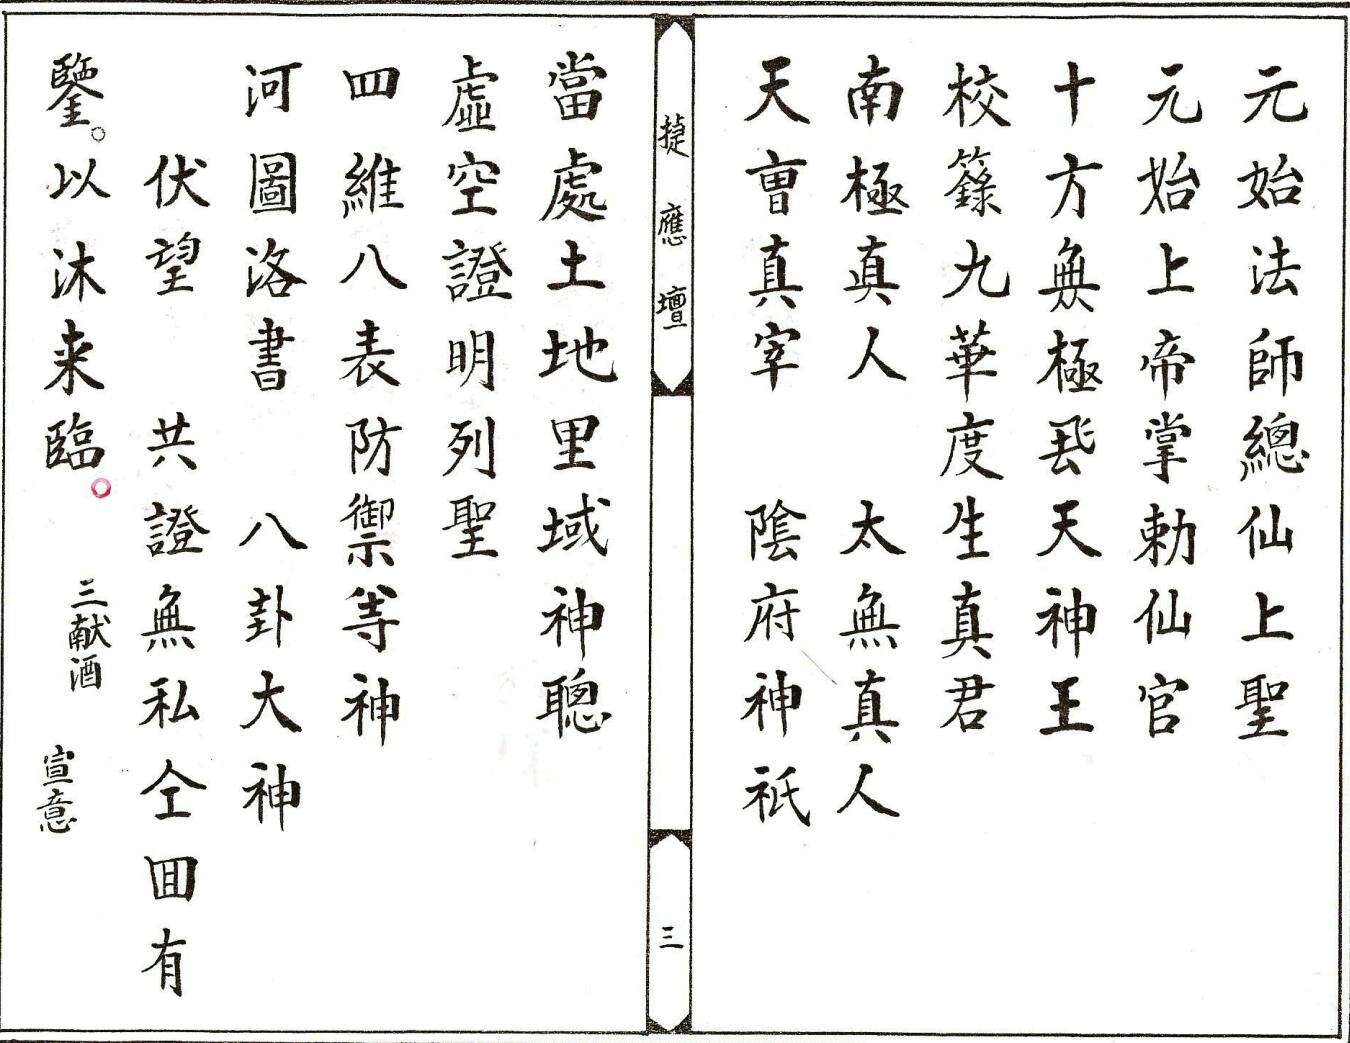 元始法師總仙上聖
元始上帝掌勅仙官
十方無極飛天神王
校籙九華度生真君
南極真人　太無真人
天曹真宰　陰府神祇
捷應壇
三
當處土地里域神聰
虛空證明列聖
四維八表防禦等神
河圖洛書　八卦大神
伏望　共證無私仝囬有
鑒。以沐来臨。　三献酒　宣意